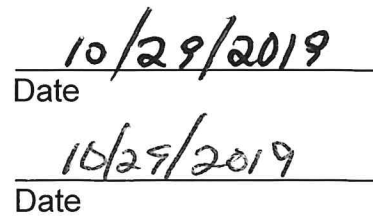 10/29/2019
Date
10/29/2019
Date